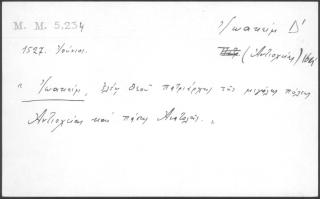 M. M. 5.234
Ἰωακείμ Δ΄
1527. Ἰούνιος.
(Ἀντιοχείας)
" Ἰωακείμ, ἐλέῳ Θεοῦ πατριάρχης τῆς μεγάλης πόλεως
Ἀντιοχείας καὶ πάσης Ἀνατολῆς. "